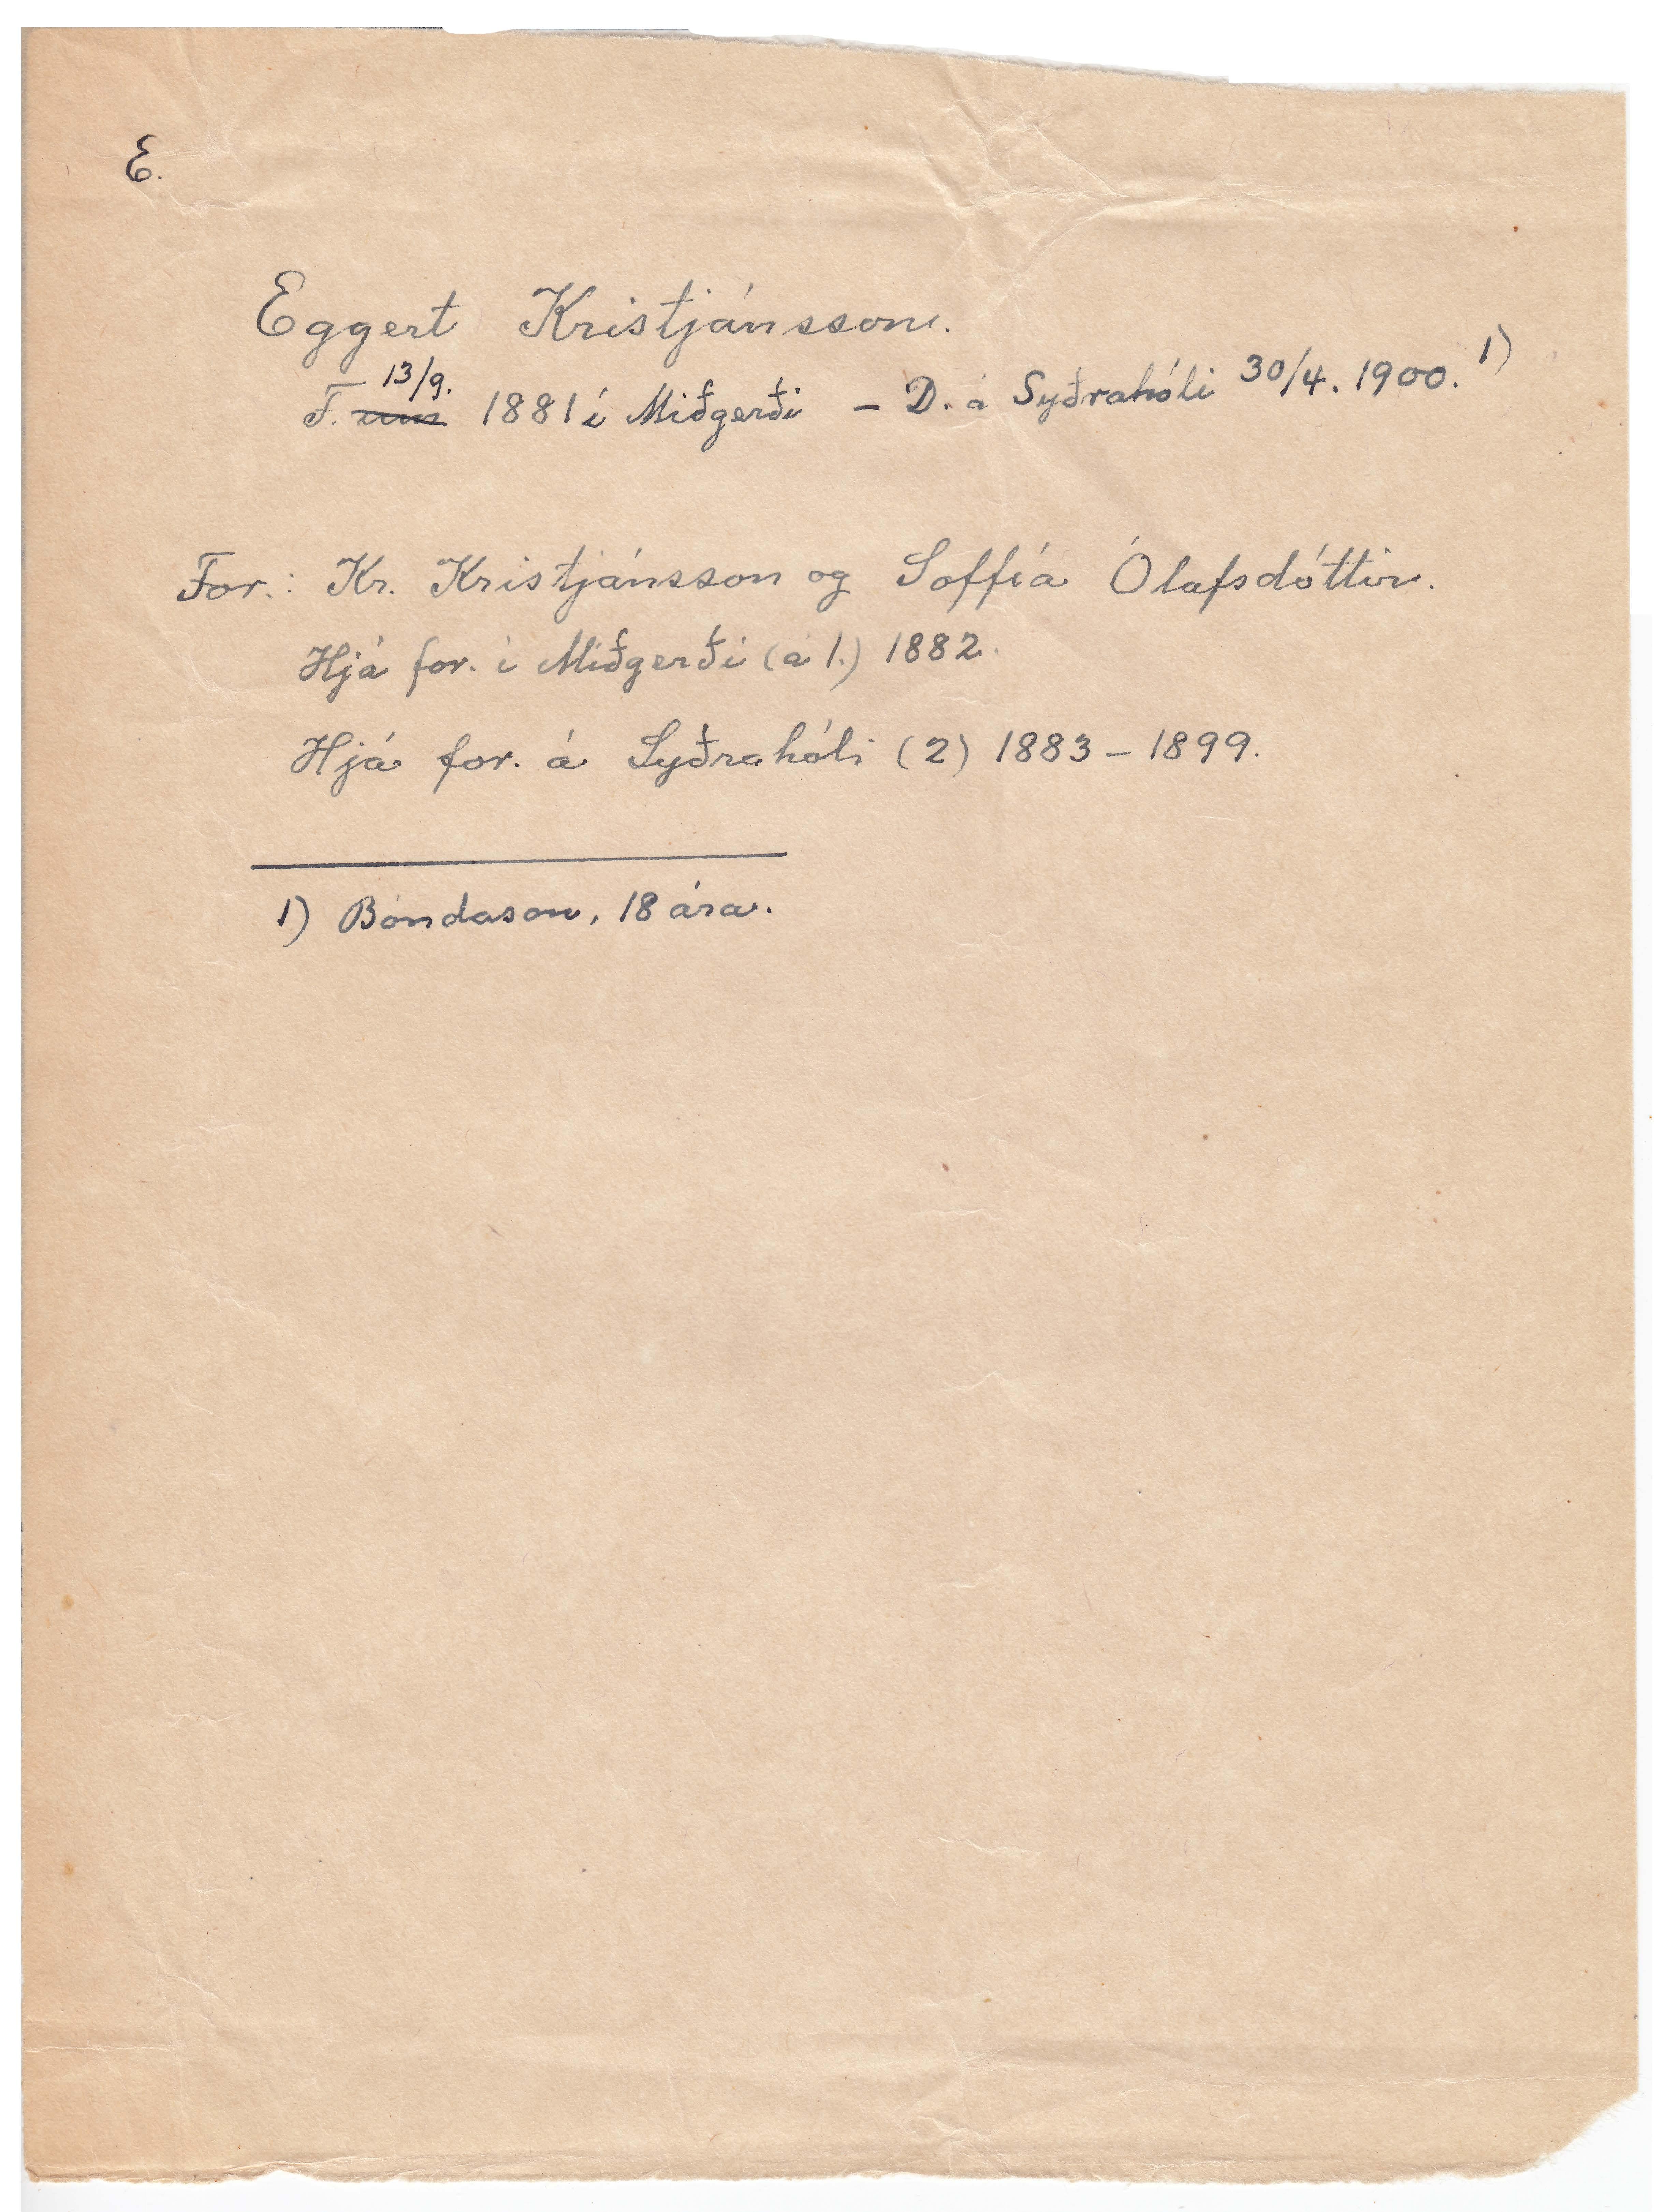 E.
Eggert Kristjánsson.
F. 13/9. 1881 í Miðgerði – D. á Syðrahóli 30/4. 1900. 1)
For.: Kr. Kristjánsson og Soffía Ólafsdóttir.
Hjá for. í Miðgerði (á 1.) 1882.
Hjá for. á Syðrahóli (2) 1883 – 1899.
1) Bóndason, 18 ára.